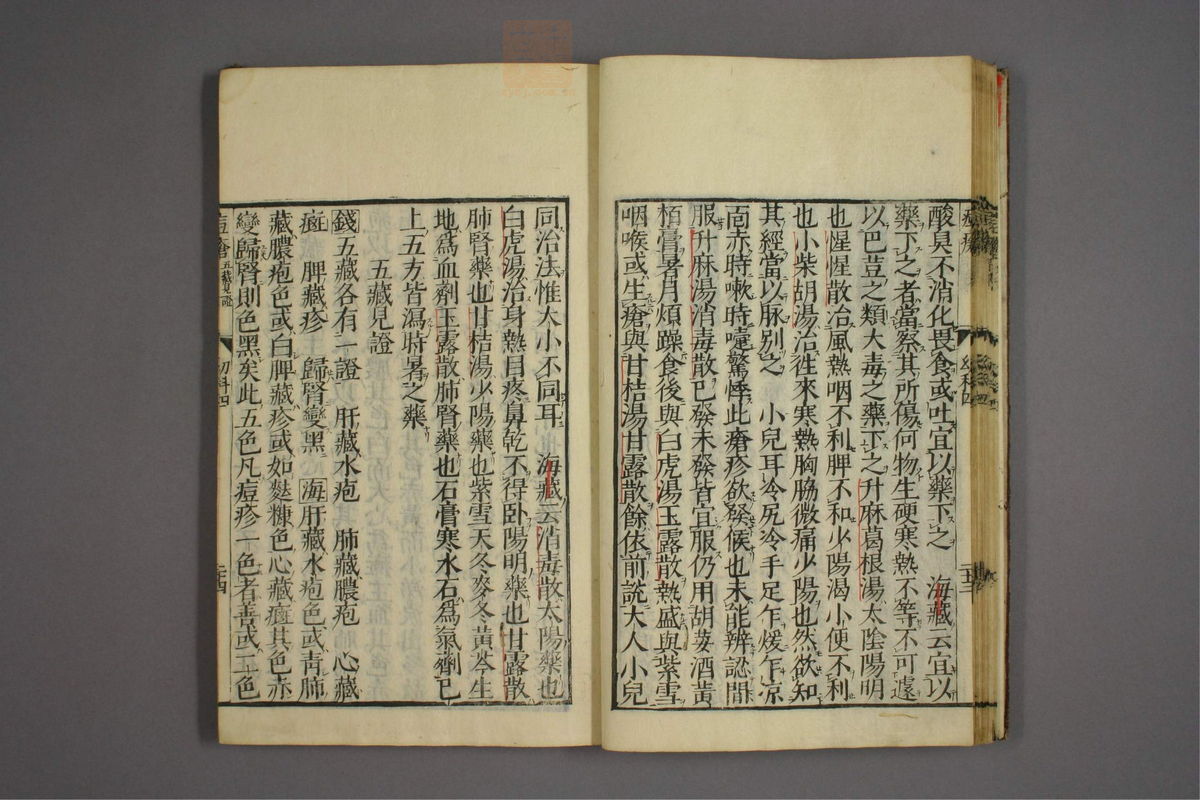 酸臭不消化畏食或吐宜以藥下之　海藏云宜以
藥下之者當察其所傷何物生硬寒熱不等不可遽
以巴荳之類大毒之藥下之升麻葛根湯太陰陽明
也惺惺散治風熱咽不利脾不和少陽渴小便不利
也小柴胡湯治徃來寒熱胸脇微痛少陽也然欲知
其經當以脉别之　小兒耳冷尻冷手足乍煖乍凉
靣赤時嗽時嚏驚悸此瘡疹欲發候也未能辨認間
服升麻湯消毒散已發未發皆宜服仍用胡荽酒黃
栢膏暑月煩躁食後與白虎湯玉露散熱盛與紫雪
咽喉或生瘡與甘桔湯甘露散餘依前説大人小兒
幼科四
同治法惟大小不同耳　海藏云消毒散太陽藥也
白虎湯治身熱目疼鼻乾不得卧陽明藥也甘露散
肺腎藥也甘桔湯少陽藥也紫雪天冬麥冬黃芩生
地爲血劑玉露散肺腎藥也石膏寒水石爲氣劑已
上五方皆瀉時暑之藥
五藏見證
錢五藏各有一證　肝藏水疱　肺藏膿疱　心藏
癍　脾藏疹　歸腎變黑　海肝藏水疱色或青肺
藏膿疱色或白脾藏疹或如麩糠色心藏癍其色赤
變歸腎則色黑矣此五色凡痘疹一色者善或二色
五藏見證
幼科四